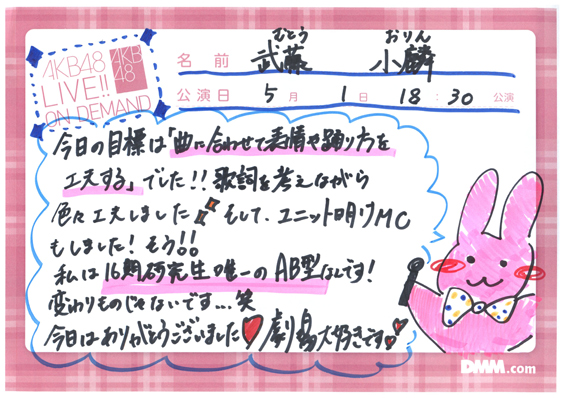 AKB48
LIVE!!
ON DEMAND
AKB
48
むとう おりん
名前 武藤 小麟
公演日 5月 1日 18:30 公演
今日の目標は「曲に合わせて表情や踊り方を
工夫する」でした!!歌詞を考えながら
色々工夫しました そして、ユニット明けMC
もしました!そう!!
私は16期研究生唯一のAB型なんです!
変わりものじゃないです...笑
今日はありがとうございました♥劇場大好きです♥
DMM.com